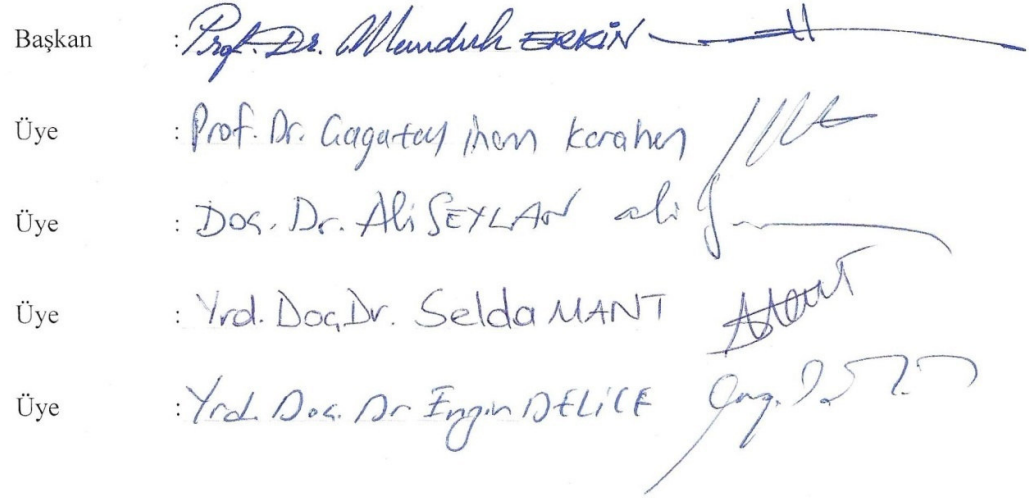 Başkan : Prof. Dr. Memduh ERKİN
Üye : Prof. Dr. Çagatay İnam Karahan
Üye : Doç. Dr. Ali SEYLAN ali
Üye : Yrd. Doç. Dr. Selda MANT
Üye : Yrd. Doç. Dr Engin DELİCE